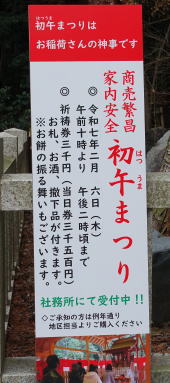 はつうま
初午まつりは
お稲荷さんの神事です
商売繁昌
家内安全
初午まつり
はつ うま
◎令和七年二月 六日(木)
午前十時より 午後二時頃まで
◎祈祷券三千円(当日券三千五百円)
お札、お酒、撤下品が付きます。
※お餅の振る舞いもございます。
社務所にて受付中!!
◇ご承知の方は例年通り
地区担当よりご購入ください